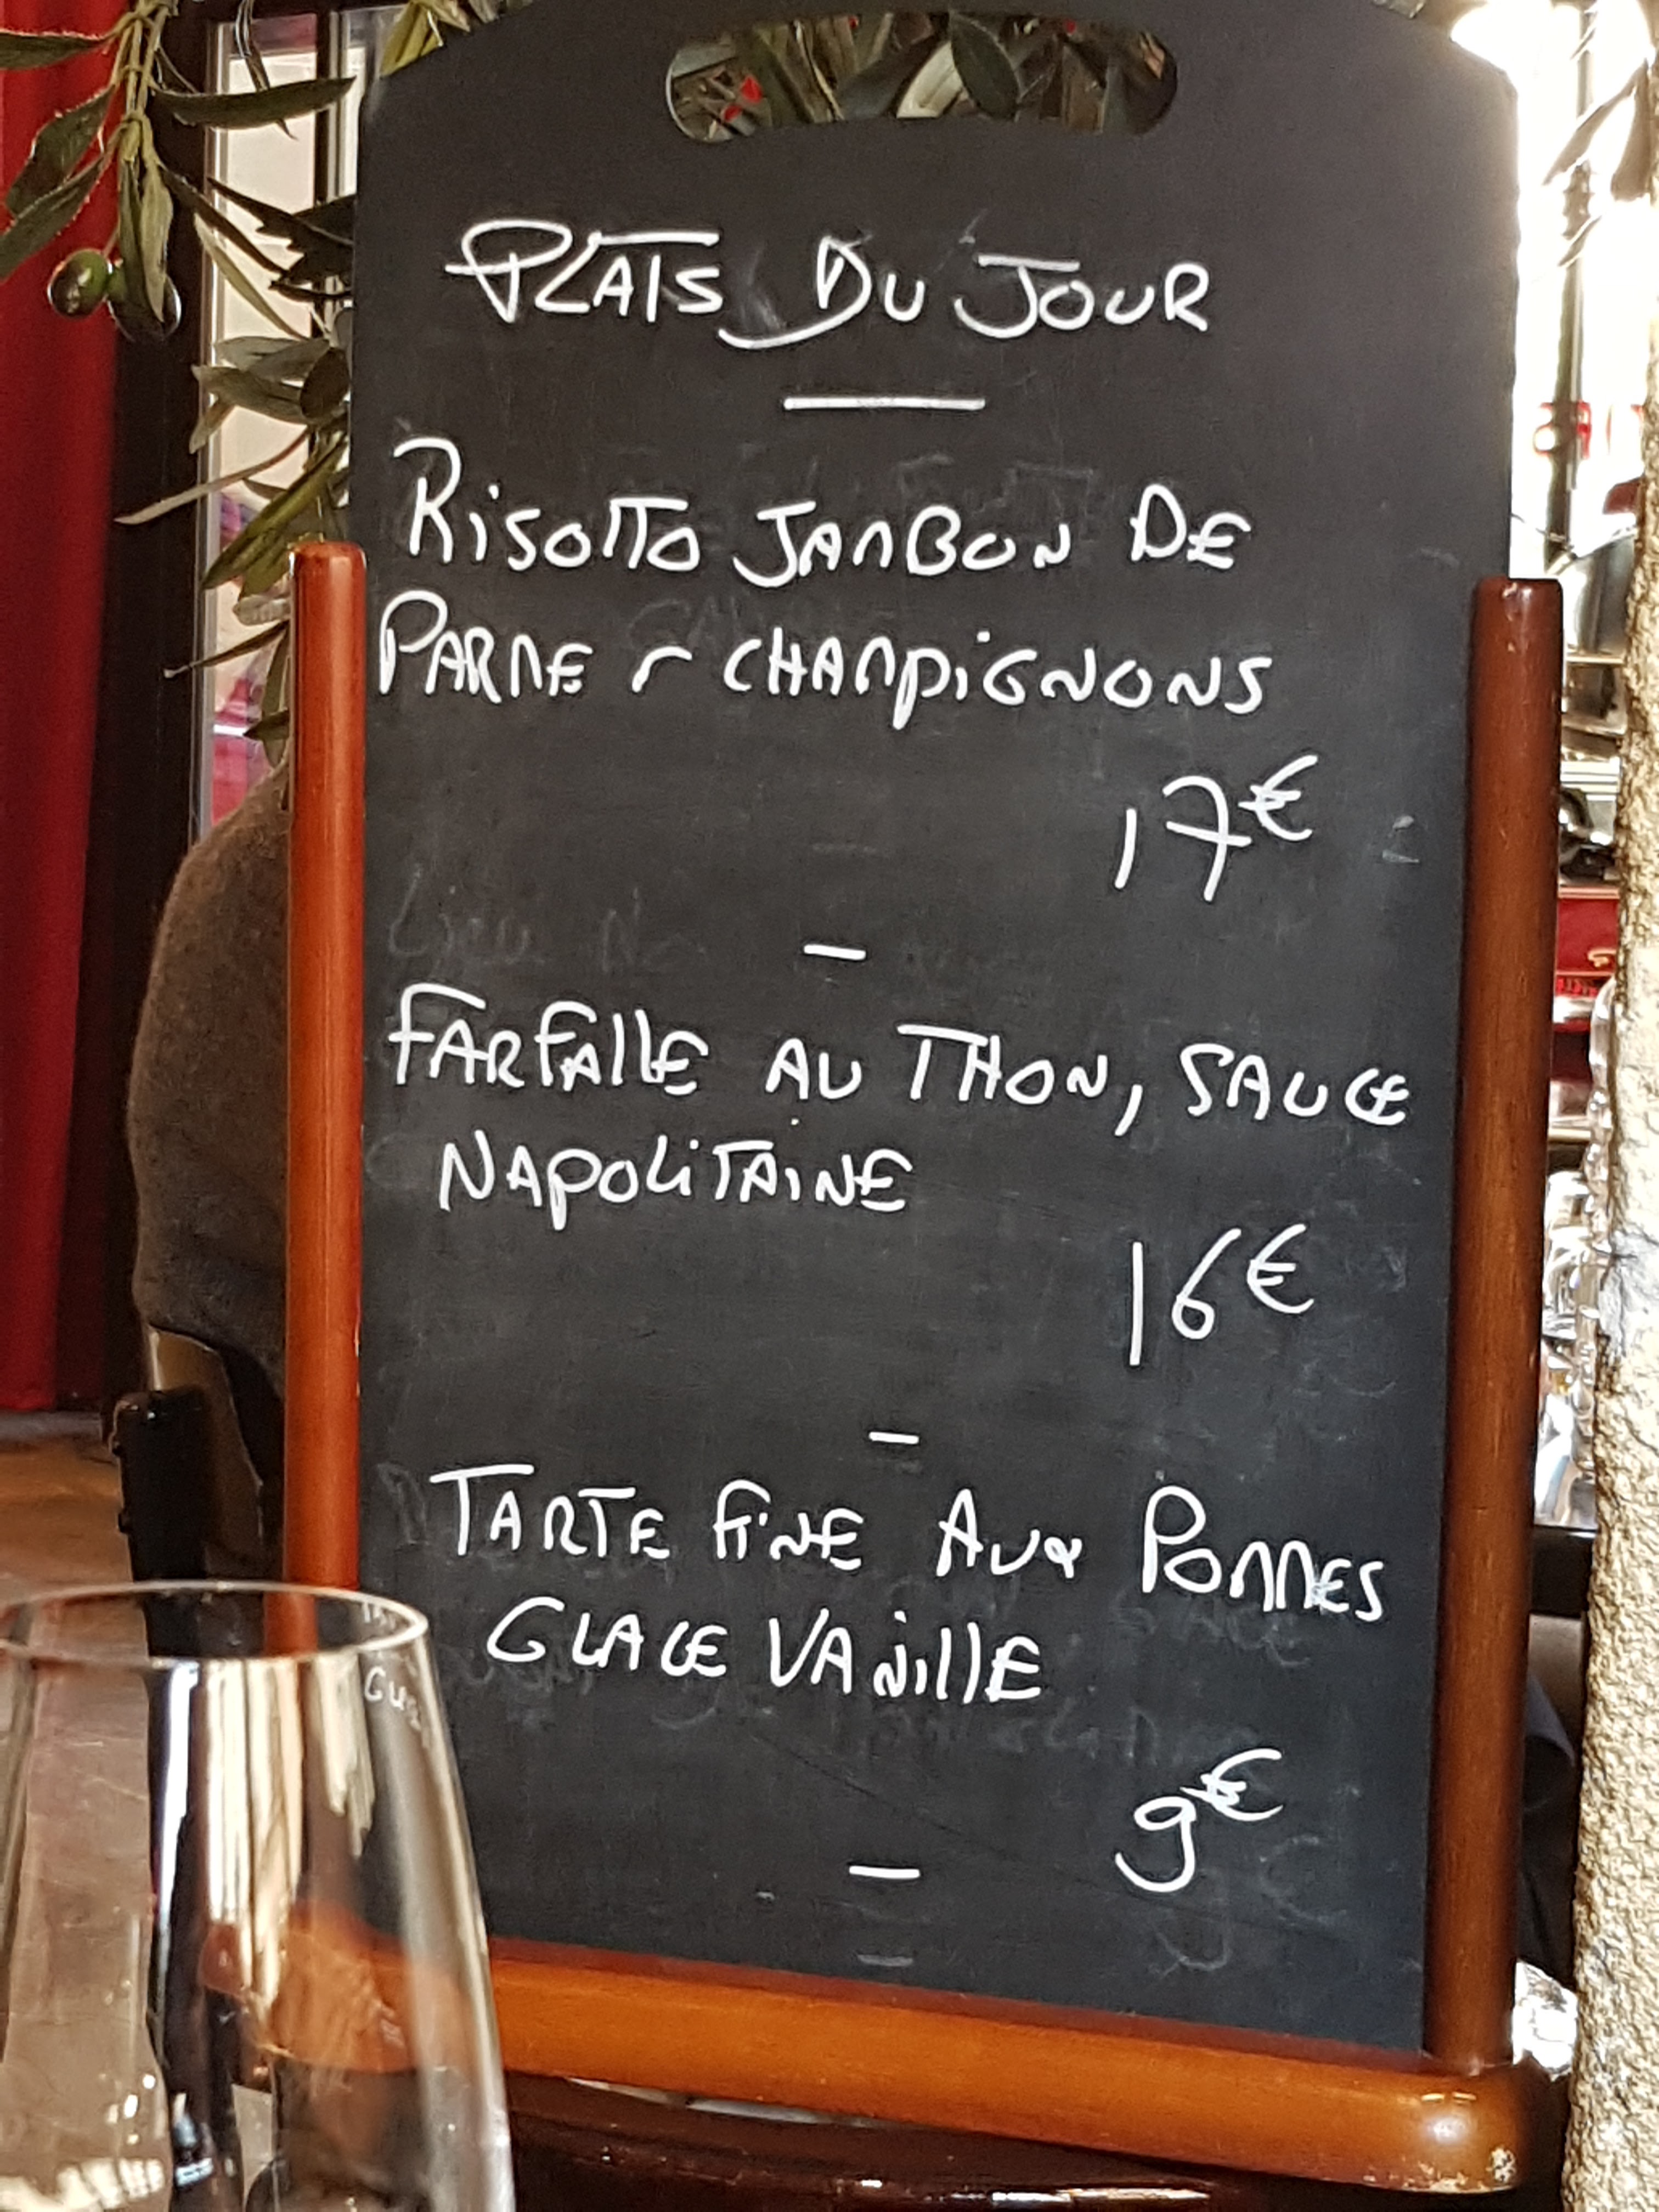 PLATS DU JOUR
RISOTTO JAMBON DE
PARME CHAMPIGNONS
17€
FARFALLE AU THON, SAUCE
NAPOLITAINE
16€
TARTE FINE AUX POMMES
GLACE VANILLE
9€